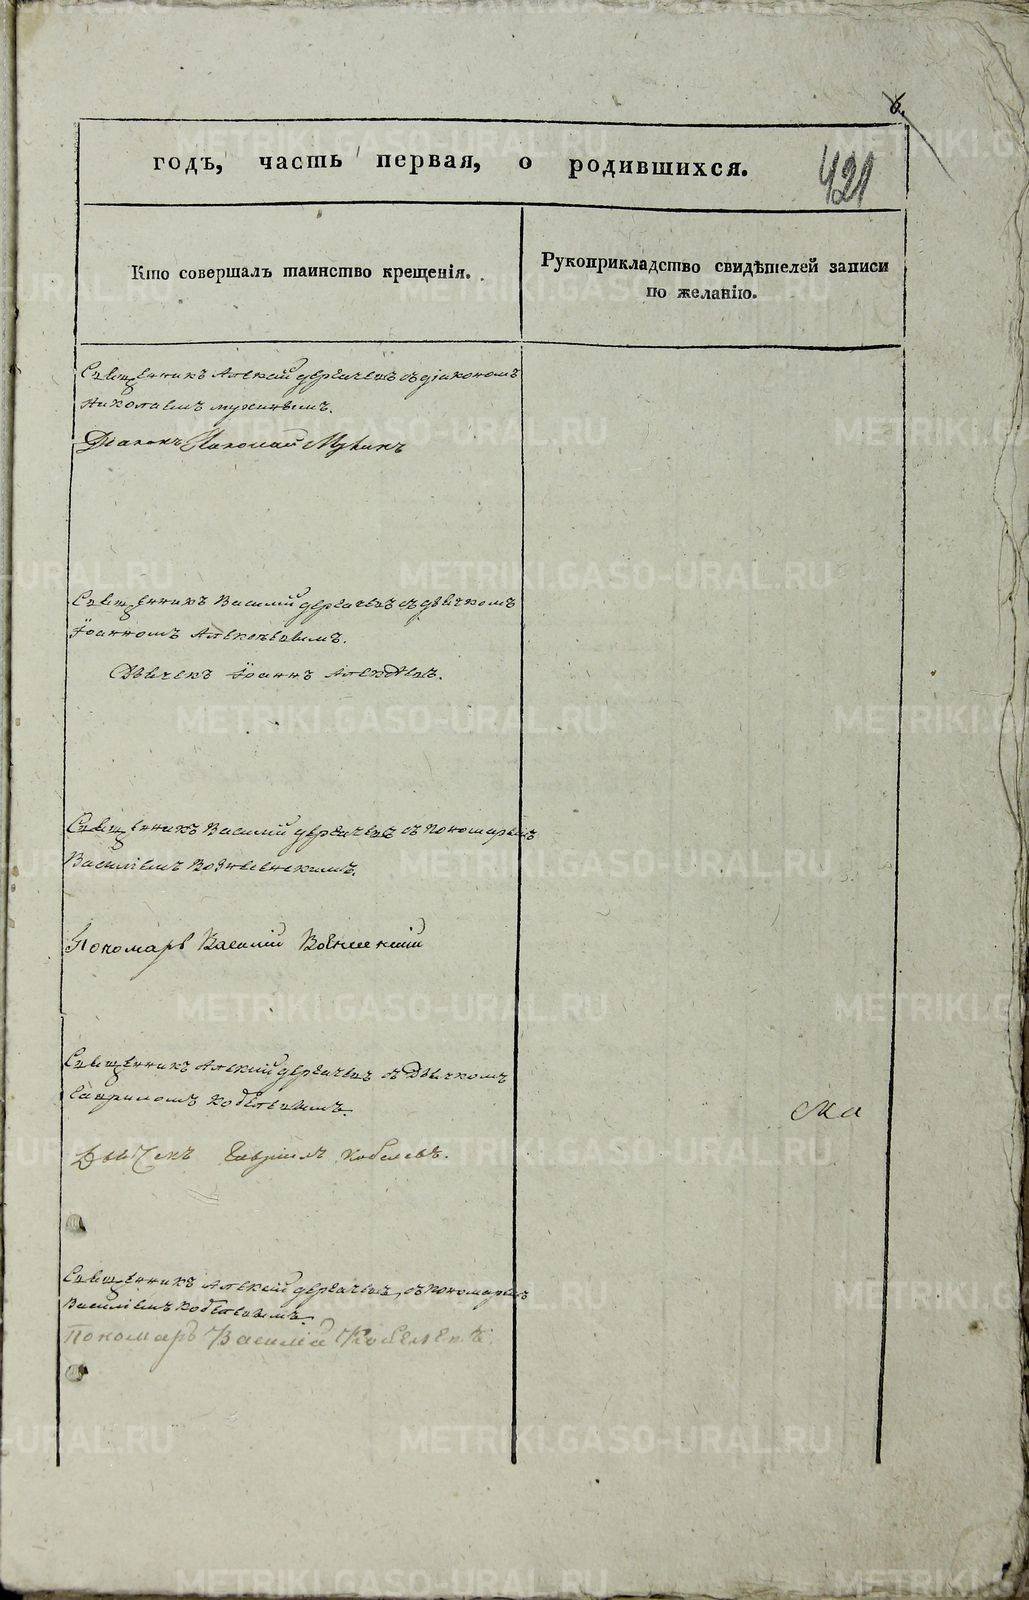 6.
годъ, часть первая, о родившихся.
421
Кто совершалъ таинство крещенія.
Рукоприкладство свидѣтелей записи
по желанію.
Священникъ Алексій Дергачевъ съ діакономъ
Николаемъ Мухинымъ.
Діаконъ Николай Мухинъ
Священникъ Василій Дергачевъ съ дьячкомъ
Іоанномъ
Дьячекъ Іоаннъ
Священникъ Василій Дергачевъ съ пономаремъ
Василіемъ Вознесенскимъ.
Пономарь Василій
Священникъ Алексій Дергачевъ съ дьячкомъ
Гавриломъ Кобелевымъ.
Дьячекъ Гавріилъ Кобелевъ.
Священникъ Алексій Дергачевъ, съ пономаремъ
Василіемъ Кобелевымъ.
Пономарь Василій Кобелевъ.
METRIKI.GASO-URAL.RU